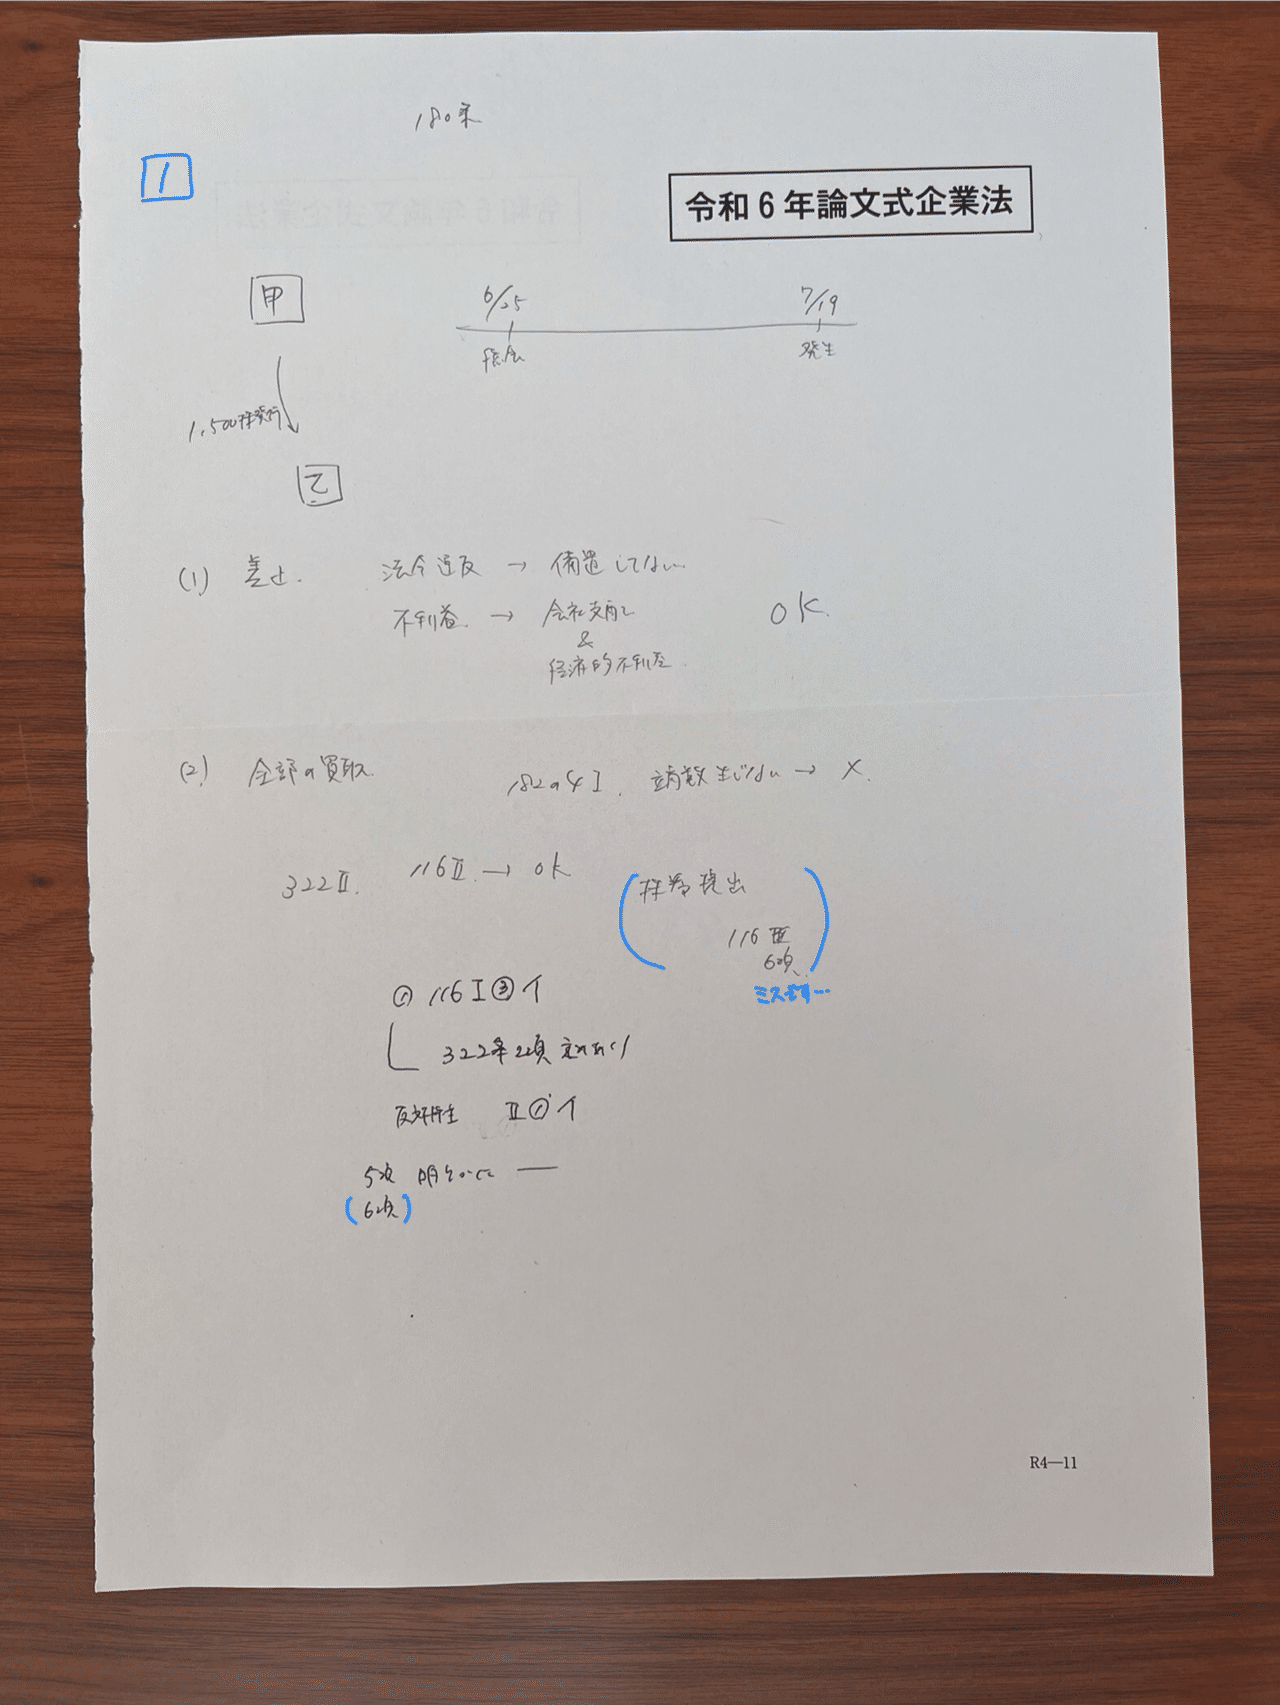 180条
1
令和6年論文式企業法
甲
6/25
7/19
総会
発生
1,500株発行
乙
(1) 差止. 法令違反 → 備置してない
不利益 → 会社支配
OK.
&
経済的不利益
(2) 全部の買取. 182の4 I. 端数生じない → ×.
322Ⅱ. 116Ⅱ → OK
株券提出
116Ⅲ
6項
ミスです…
① 116Ⅰ③イ
322条2項 定めあり
反対株主 Ⅱ①イ
5項 明らかに —
(6項)
R4—11